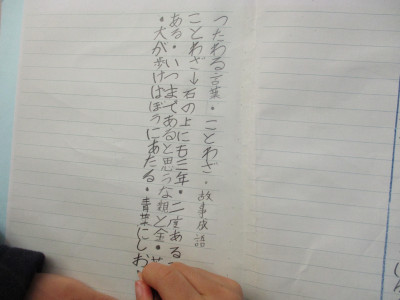 つたわる言葉・ことわざ・故事成語
ことわざ→石の上にも三年・二度ある
ある・いつまであると思うな親と金・
・犬が歩けばぼうにあたる・青菜にしお・